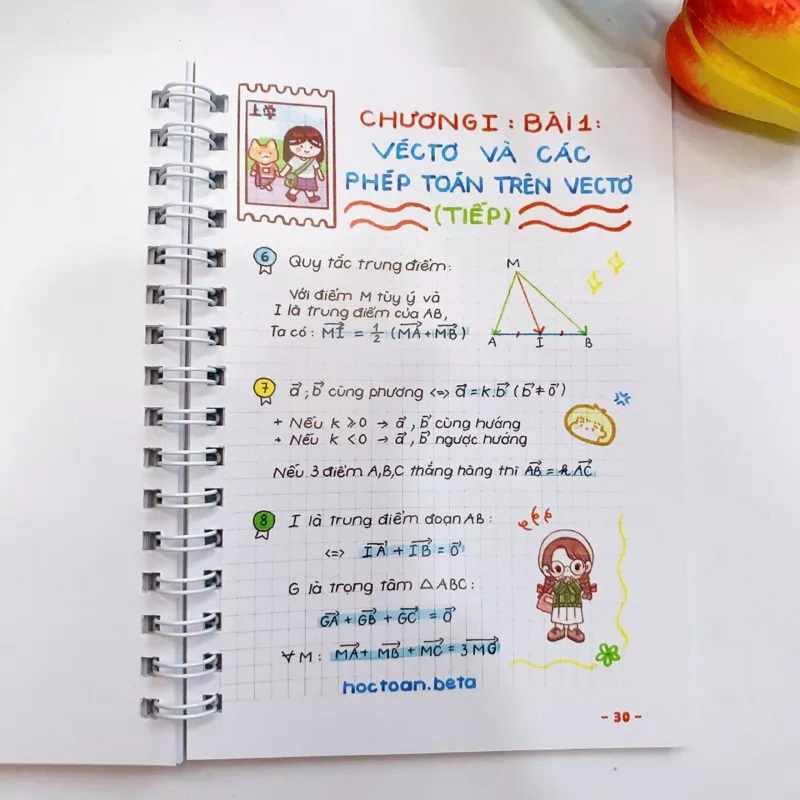 上学
CHƯƠNG I : BÀI 1 :
VÉCTƠ VÀ CÁC
PHÉP TOÁN TRÊN VECTƠ
(TIẾP)
6 Quy tắc trung điểm:
Với điểm M tùy ý và
I là trung điểm của AB,
Ta có: $\overrightarrow{MI} = \frac{1}{2} (\overrightarrow{MA} + \overrightarrow{MB})$
M
A I B
7 $\vec{a}$ ; $\vec{b}$ cùng phương <=> $\vec{a} = k.\vec{b}$ ($\vec{b} \neq \vec{0}$)
+ Nếu k ⩾ 0 → $\vec{a}$ , $\vec{b}$ cùng hướng
+ Nếu k < 0 → $\vec{a}$ , $\vec{b}$ ngược hướng
Nếu 3 điểm A,B,C thẳng hàng thì $\overrightarrow{AB} = k\overrightarrow{AC}$
8 I là trung điểm đoạn AB :
<=> $\overrightarrow{IA} + \overrightarrow{IB} = \vec{0}$
G là trọng tâm △ABC :
$\overrightarrow{GA} + \overrightarrow{GB} + \overrightarrow{GC} = \vec{0}$
∀ M : $\overrightarrow{MA} + \overrightarrow{MB} + \overrightarrow{MC} = 3\overrightarrow{MG}$
hoctoan.beta
- 30 -